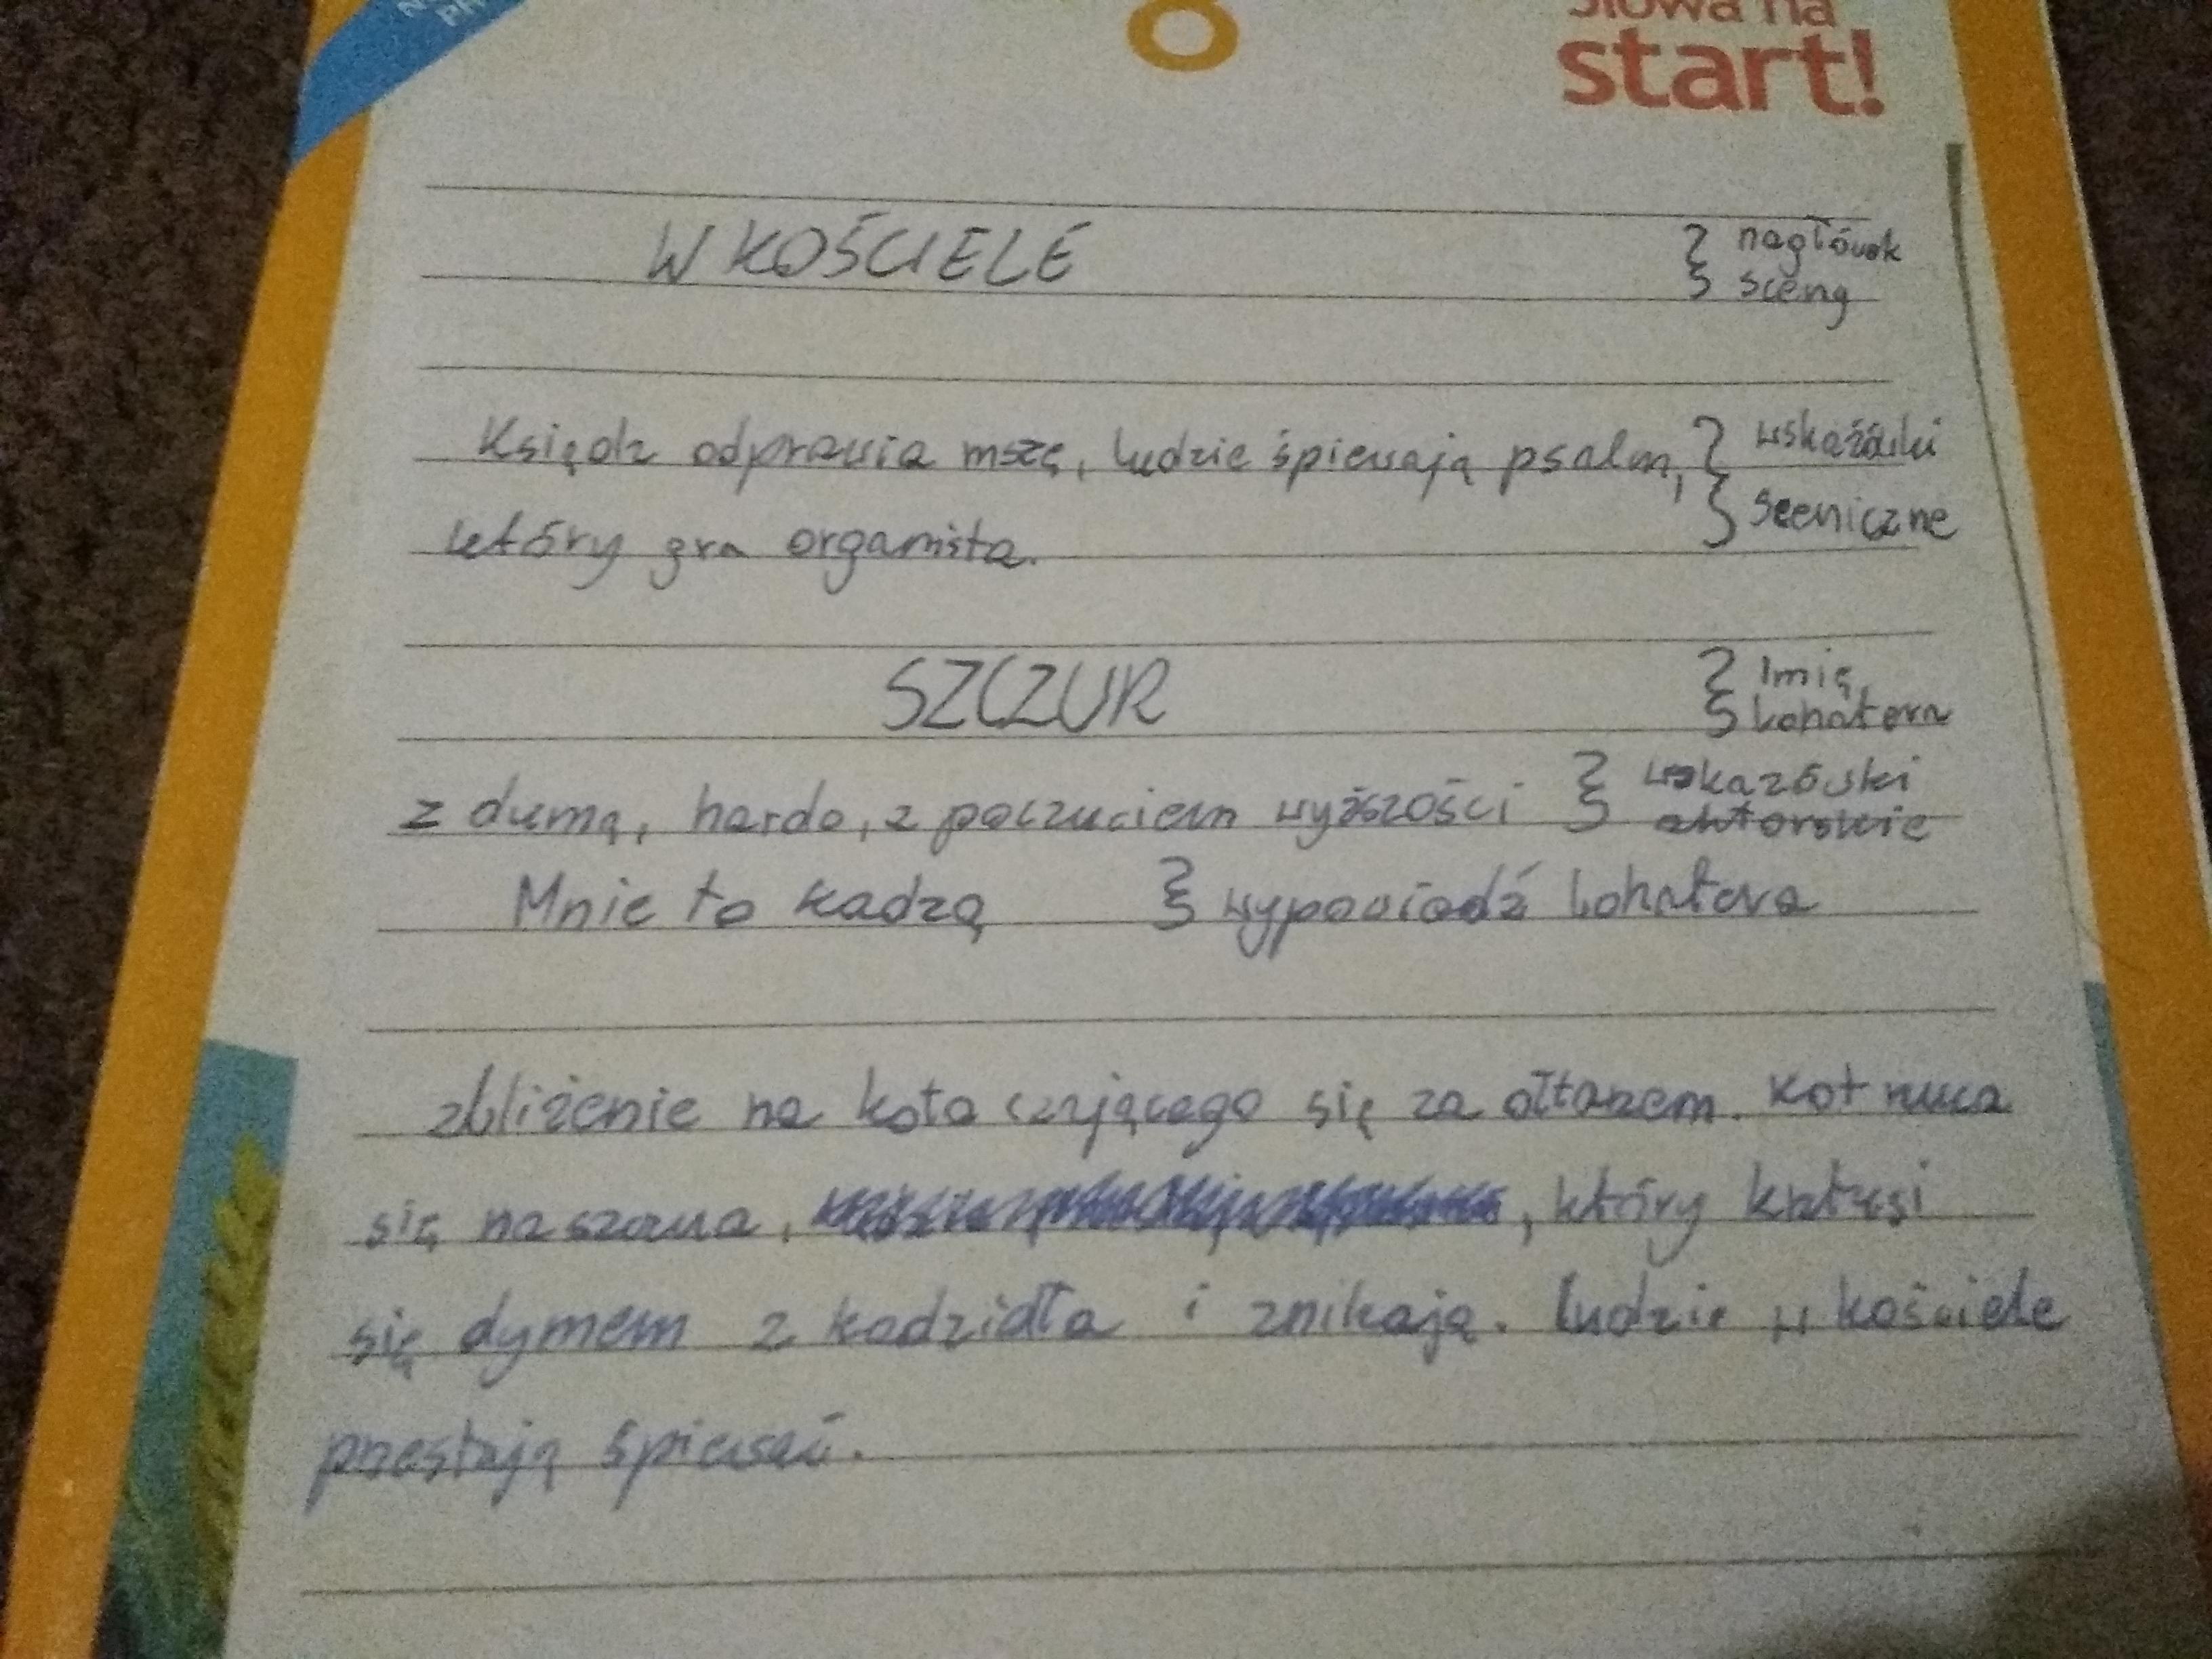 słowa na
8
start!
W KOŚCIELE } nagłówek
sceny
Ksiądz odprawia mszę, ludzie śpiewają psalm, } wskazówki
który gra organista. sceniczne
SZCZUR } Imię
bohatera
z dumą, hardo, z poczuciem wyższości } wskazówki
aktorskie
Mnie to kadzą } wypowiedź bohatera
zbliżenie na kota czającego się za ołtarzem. Kot rzuca
się na szczura, , który krztusi
się dymem z kadzidła i znikają. Ludzie w kościele
przestają śpiewać.